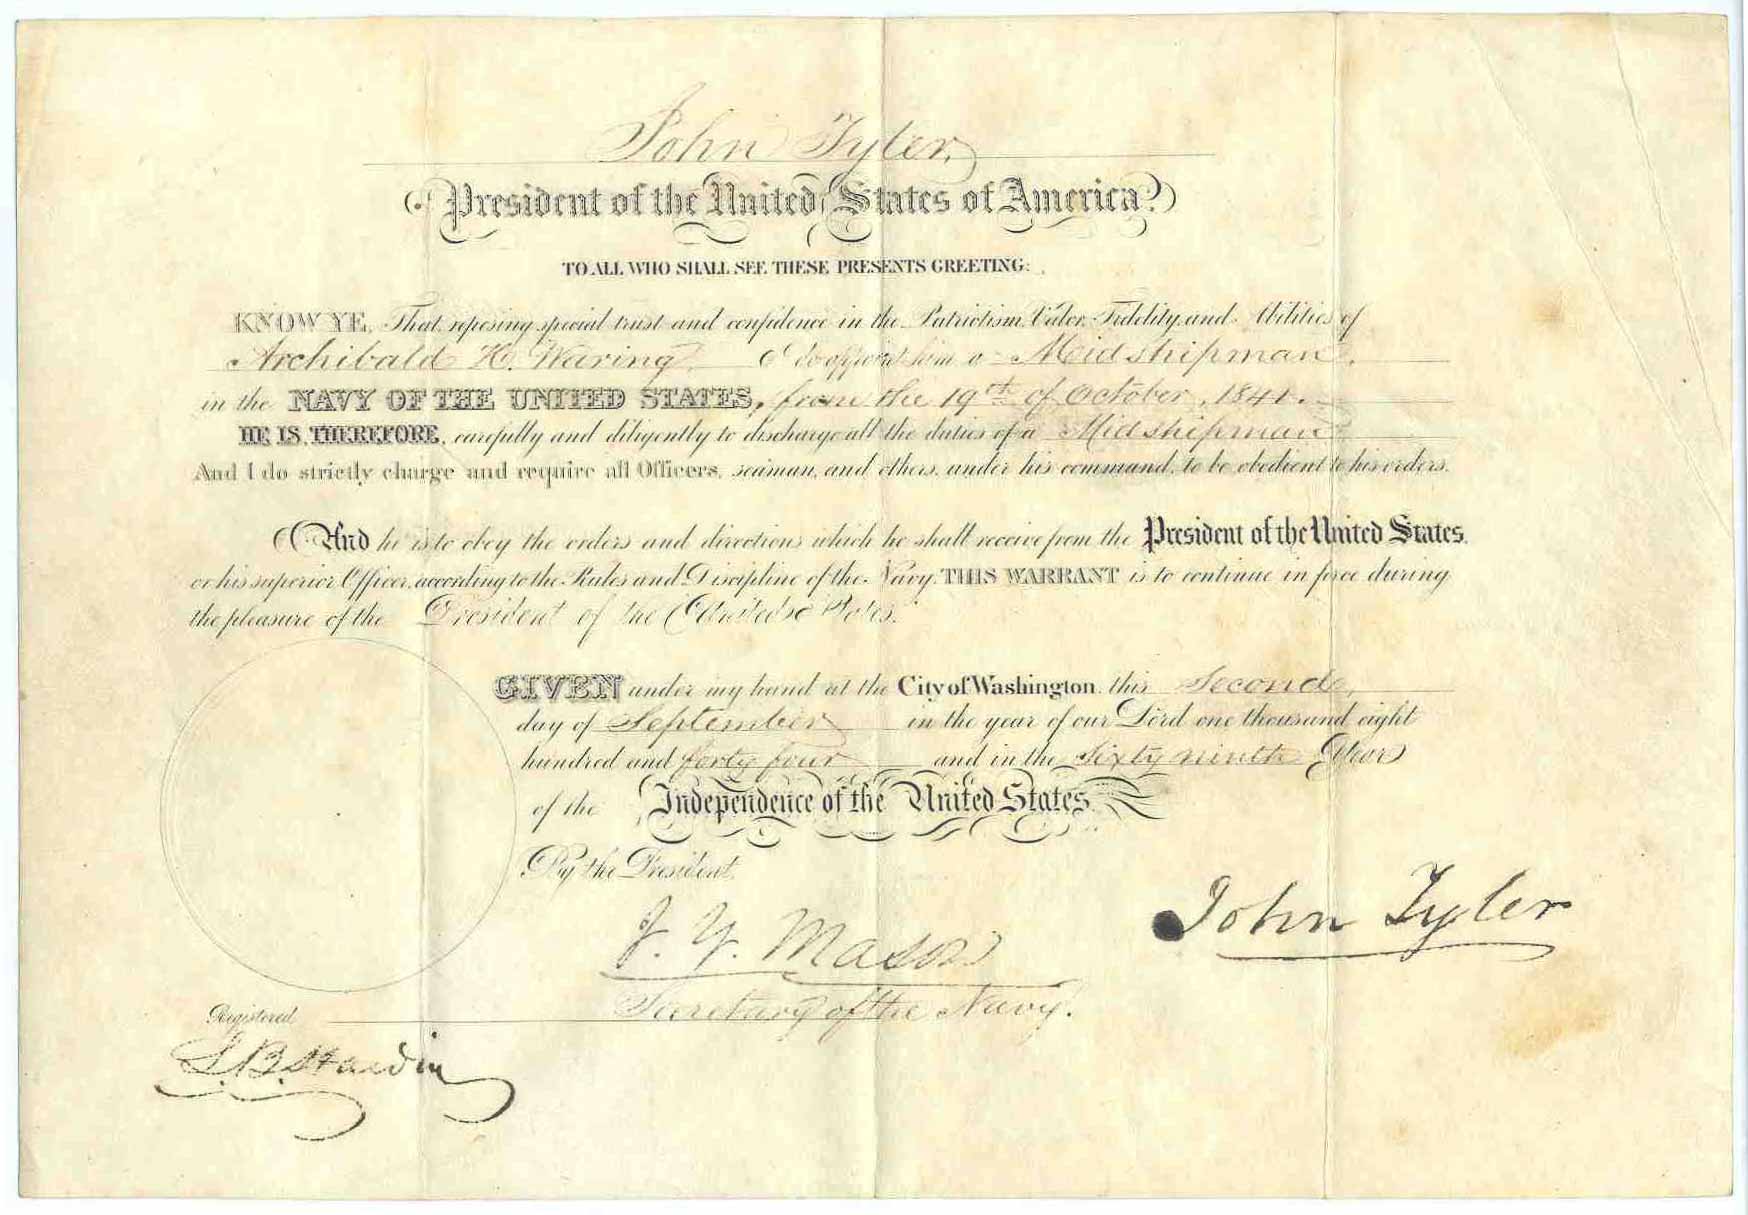 John Tyler,
President of the United States of America.
TO ALL WHO SHALL SEE THESE PRESENTS GREETING:
KNOW YE, That reposing special trust and confidence in the Patriotism, Valor, Fidelity, and Abilities of
Archibald H. Waring, I do appoint him a Midshipman,
in the NAVY OF THE UNITED STATES, from the 19th of October, 1841.
HE IS, THEREFORE, carefully and diligently to discharge all the duties of a Midshipman
And I do strictly charge and require all Officers, seaman, and others, under his command, to be obedient to his orders.
And he is to obey the orders and directions which he shall receive from the President of the United States,
or his superior Officer, according to the Rules and Discipline of the Navy. THIS WARRANT is to continue in force during
the pleasure of the President of the United States.
GIVEN under my hand at the City of Washington, this Second,
day of September in the year of our Lord one thousand eight
hundred and forty four and in the Sixty ninth Year
of the Independence of the United States.
By the President,
John Tyler
J. Y. Mason
Secretary of the Navy.
Registered,
L. B. Hardin